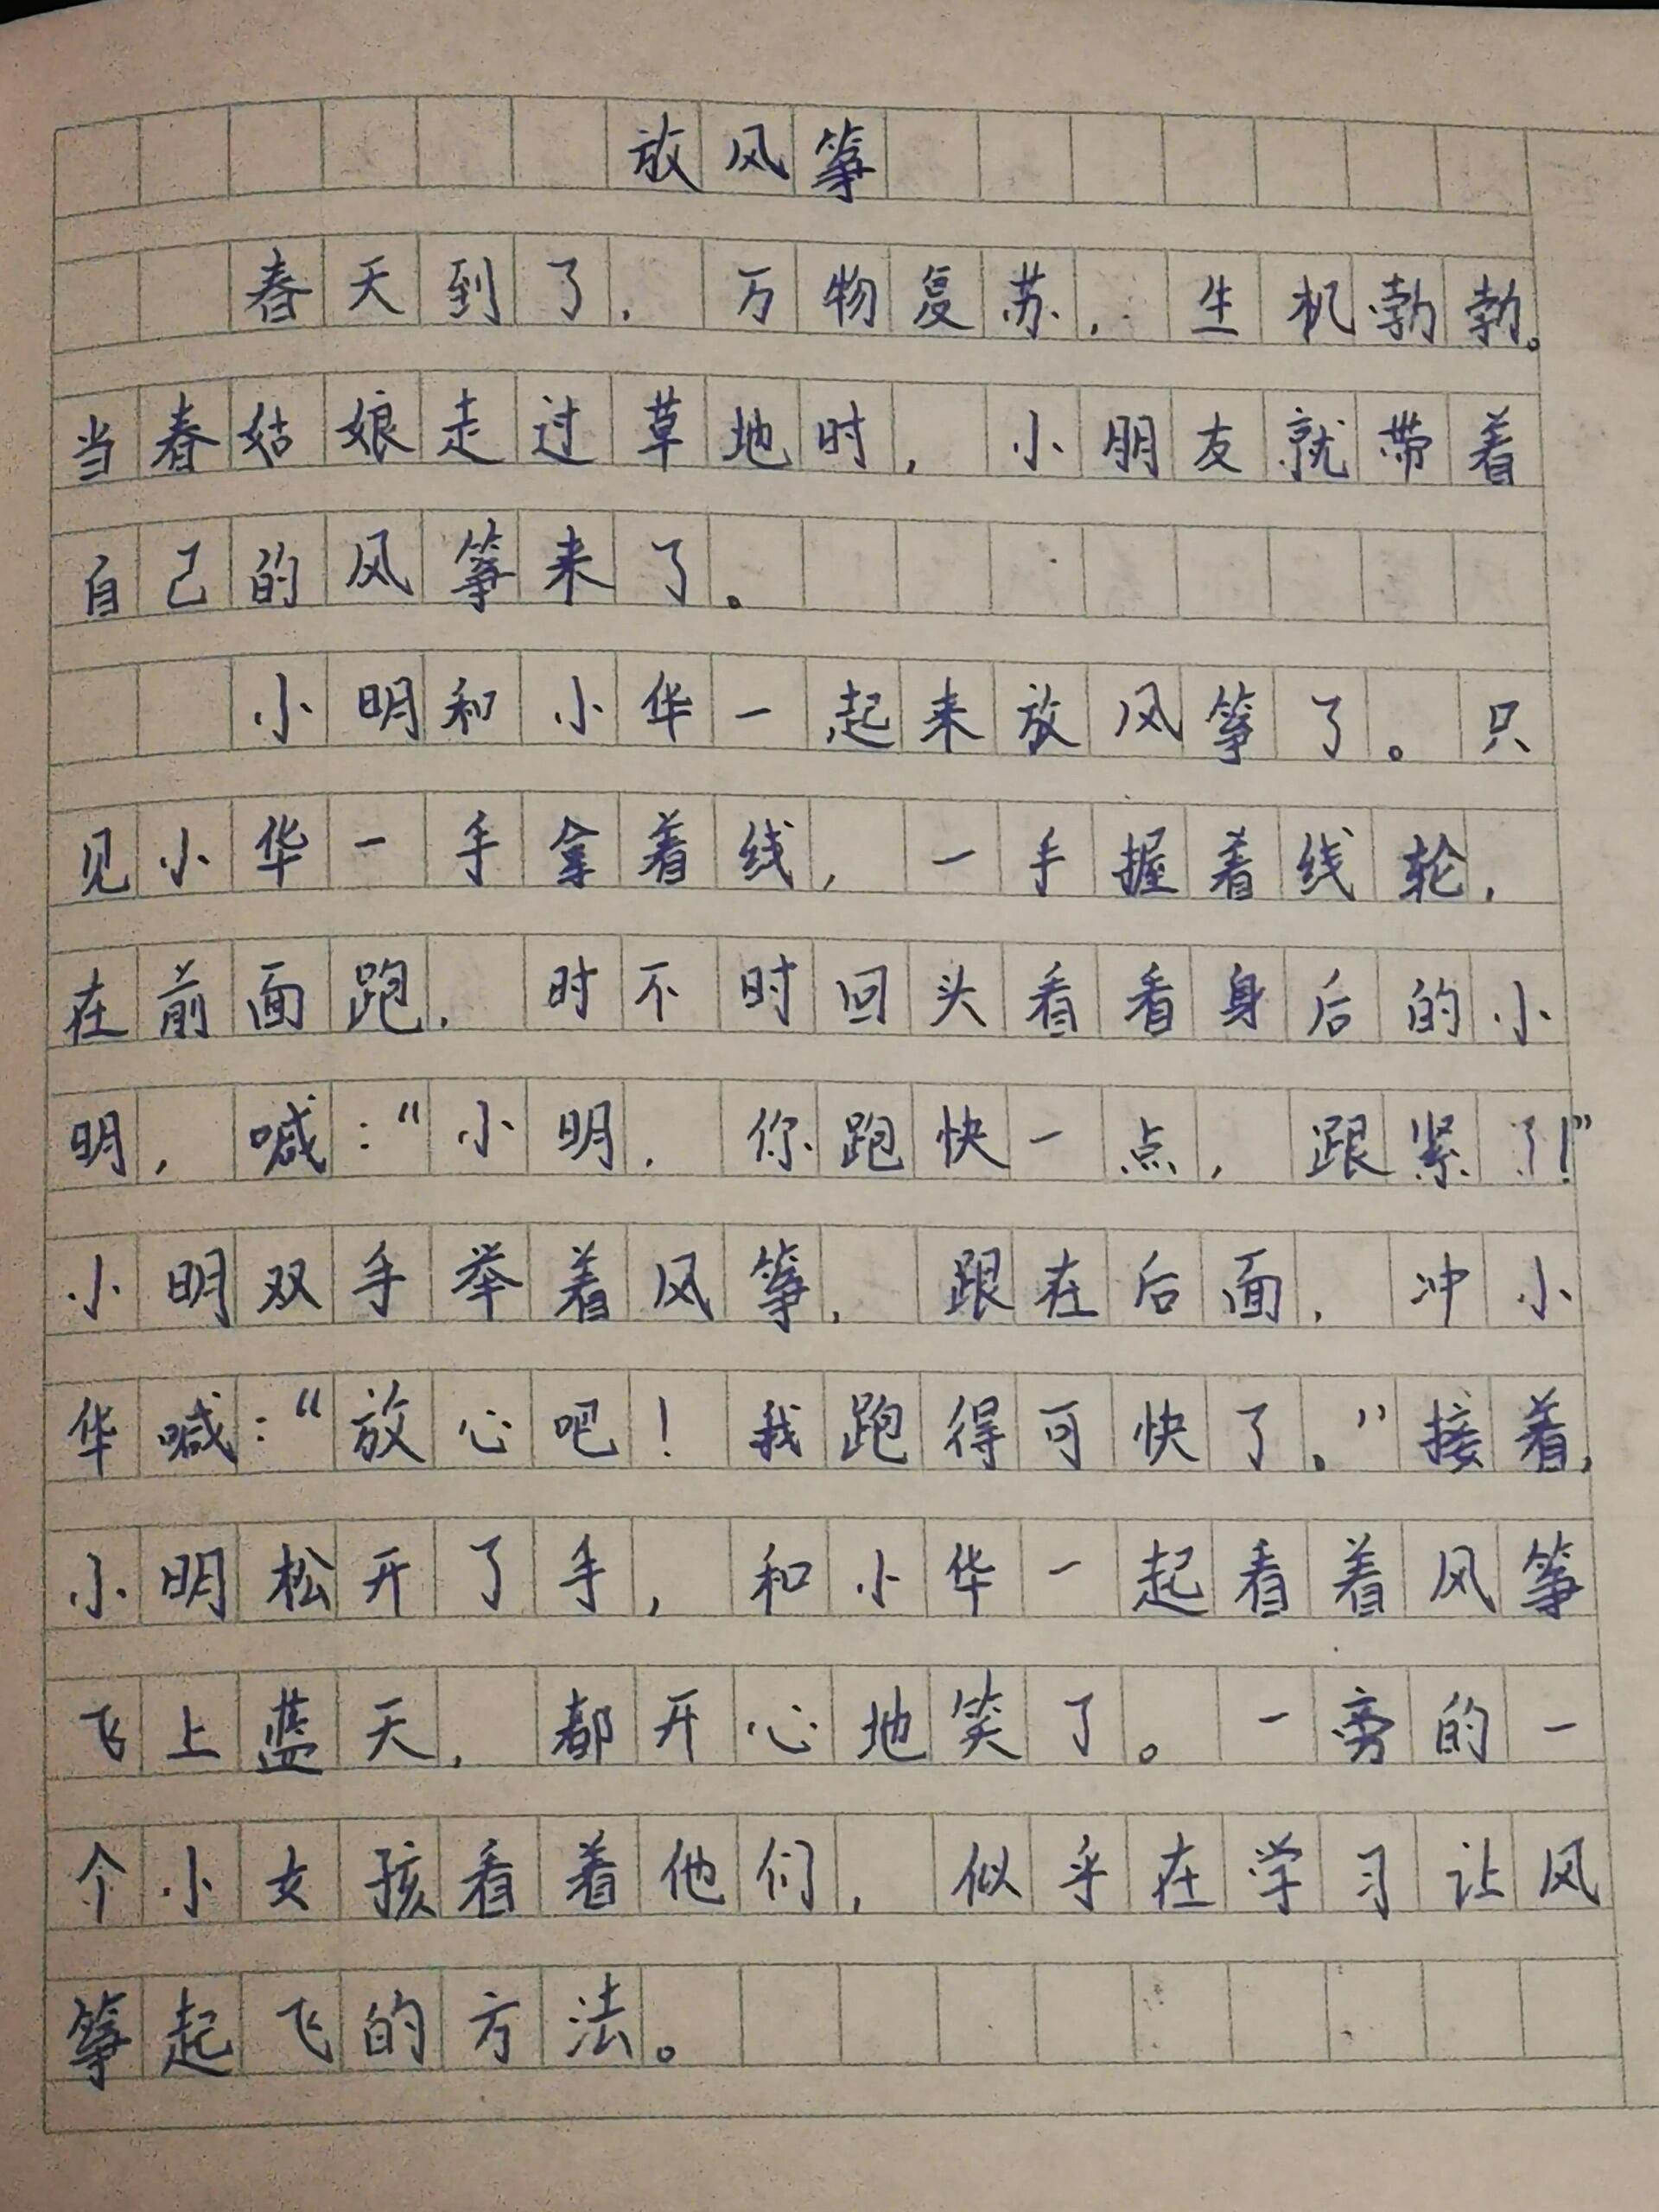 放风筝
春天到了，万物复苏，生机勃勃。
当春姑娘走过草地时，小朋友就带着
自己的风筝来了。
小明和小华一起来放风筝了。只
见小华一手拿着线，一手握着线轮，
在前面跑，时不时回头看看身后的小
明，喊：“小明，你跑快一点，跟紧了！”
小明双手举着风筝，跟在后面，冲小
华喊：“放心吧！我跑得可快了。”接着，
小明松开了手，和小华一起看着风筝
飞上蓝天，都开心地笑了。一旁的一
个小女孩看着他们，似乎在学习让风
筝起飞的方法。